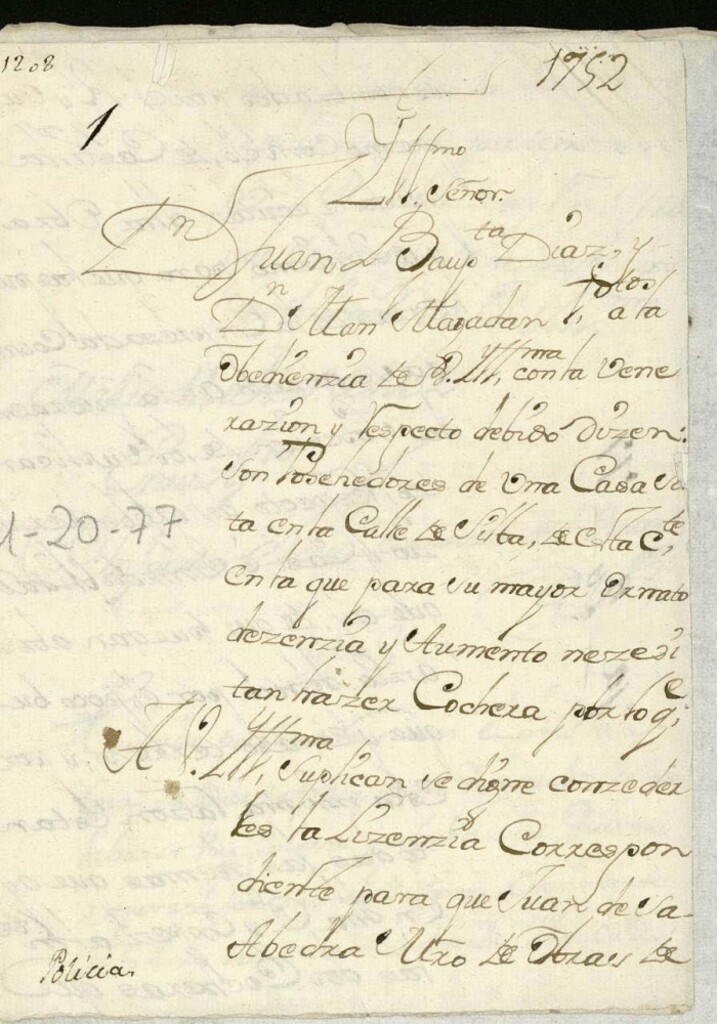 1208
1752
1
Yllmo
Señor.
Dn Juan Baupta Diaz, y
Dn Alon Magadan, Ptos a la
obedienzia de V. Yllma, con la vene
razion y respecto debido dizen:
son Posehedores de una Casa si
ta en la Calle de Silba, de esta Cte,
en la que para su mayor Ornato
dezenzia y Aumento nezesi
tan hazer Cochera por lo qe,
A V. Yllma, suplican se digne conzeder
les la Lizenzia Correspon
diente para que Juan de Sa-
Abedra Mro de Obras de
1-20-77
Policia.